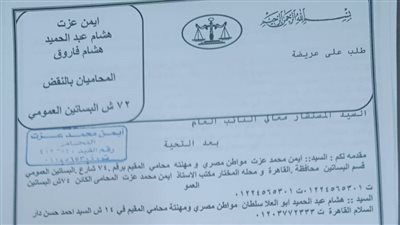 بسم الله الرحمن الرحيم
ايمن عزت
هشام عبد الحميد
هشام فاروق
المحاميان بالنقض
٧٢ ش البساتين العمومي
طلب على عريضة
السيد المستشار معالي النائب العام
بعد التحية
ايمن محمد عزت
المحامى
مقدمه لكم : السيد:: ايمن محمد عزت مواطن مصري و مهنته محامي المقيم برقم ٧٤ شارع البساتين العمومي
قسم البساتين محافظة القاهرة و محله المختار مكتب الاستاذ ايمن محمد عزت المحامى الكائن ٧٤ش البساتين
العمو
السيد :: هشام عبد الحميد ابو العلا سلطان مواطن مصري ومهنتة محامي المقيم في ١٤ ش السيد احمد حسن دار
السلام القاهرة ت ١٢٠٣٧٧٢٣٣٣